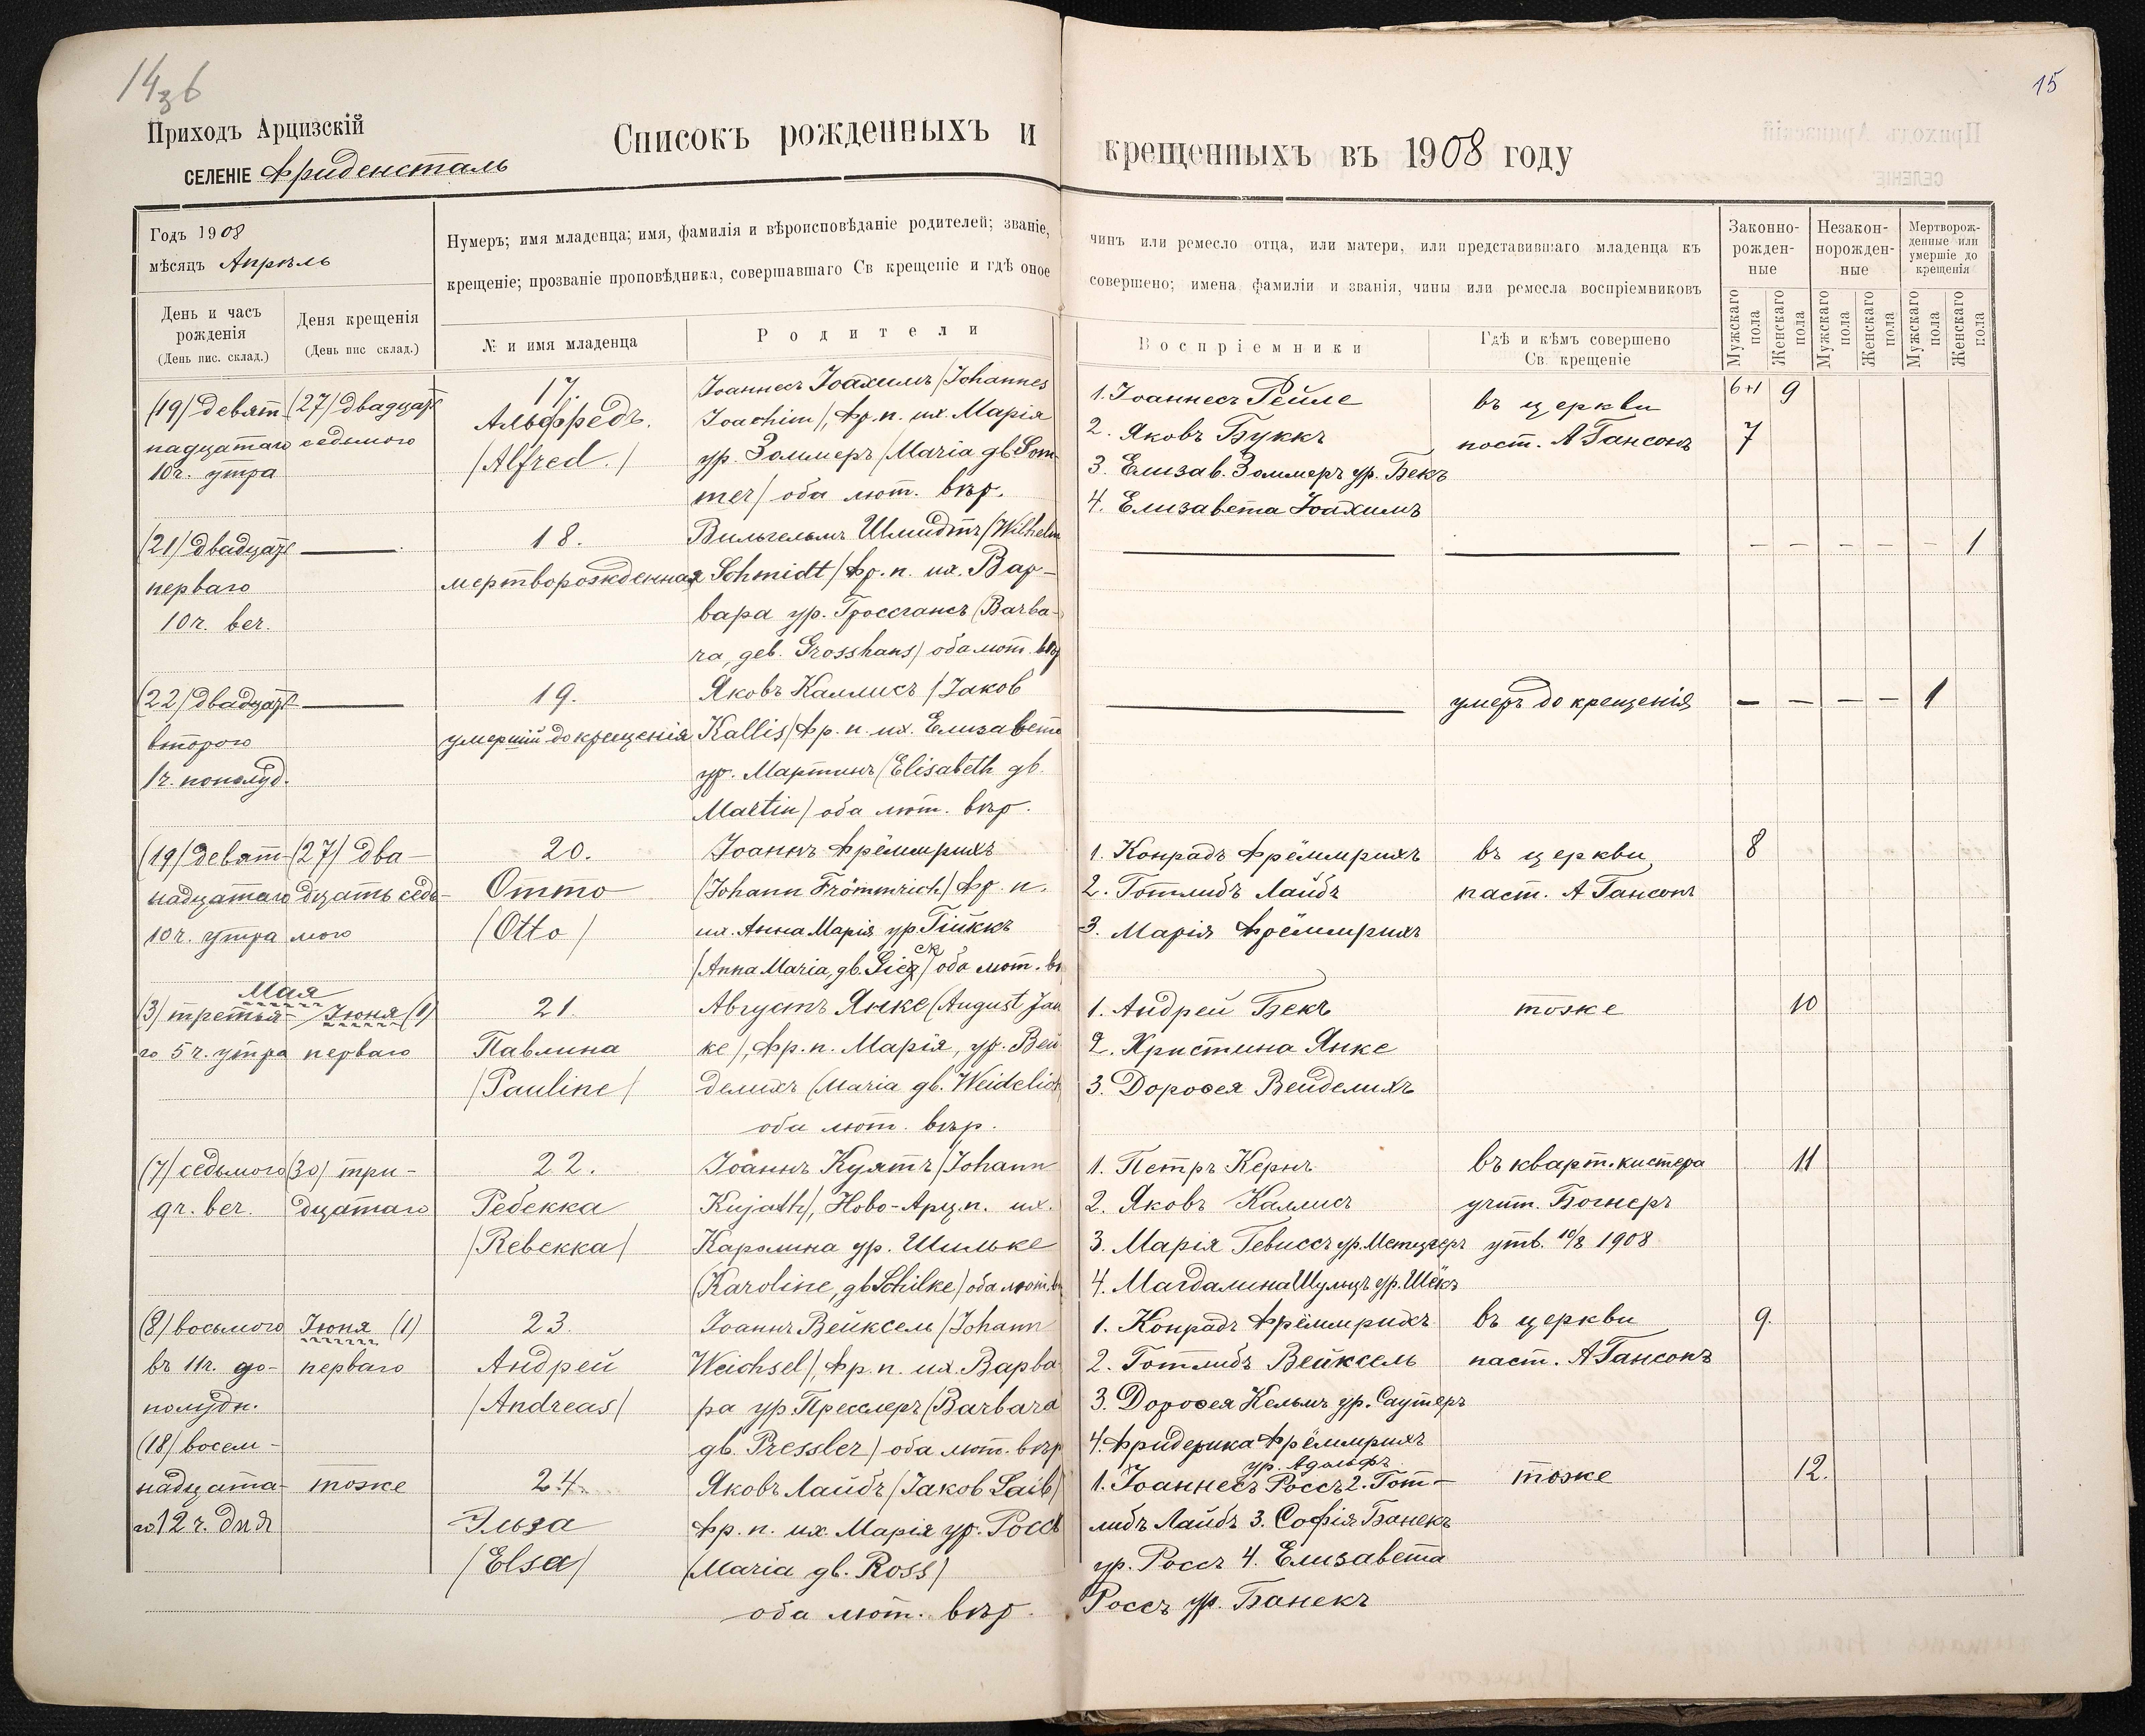 14зб
15
Приходъ Арцизскій
СЕЛЕНІЕ Фриденсталь
Списокъ рожденныхъ и крещенныхъ въ 1908 году
Годъ 1908
мѣсяцъ Апрѣль
Нумеръ; имя младенца; имя, фамилія и вѣроисповѣданіе родителей; званіе, чинъ или ремесло отца, или матери, или представившаго младенца къ
крещеніе; прозваніе проповѣдника, совершавшаго Св крещеніе и гдѣ оное совершено; имена фамиліи и званія, чины или ремесла воспріемниковъ
Законно-
рожден-
ные
Незакон-
норожден-
ные
Мертворож-
денные или
умершіе до
крещенія
День и часъ
рожденія
(День пис. склад.)
Деня крещенія
(День пис склад.)
№ и имя младенца
Родители
Воспріемники
Гдѣ и кѣмъ совершено
Св крещеніе
Мужскаго пола
Женскаго пола
Мужскаго пола
Женскаго пола
Мужскаго пола
Женскаго пола
(19) девят-
надцатаго
10 ч. утра
(27) двадцать
седьмого
17.
Альфредъ.
(Alfred.)
Іоаннесъ Іоахимъ (Johannes
Joachim), Фр. п. их. Марія
ур. Золлмеръ (Maria gb Som-
mer) оба лют. вѣр.
1. Іоаннесъ Рейле
2. Яковъ Буккъ
3. Елизав. Золлмеръ ур. Бекъ
4. Елизавета Іоахимъ
въ церкви
пост. А Гансонъ
6+1 9
7
(21) двадцать
перваго
10 ч. веч.
18.
мертворожденная
Вильгельмъ Шмидтъ (Wilhelm
Schmidt) Фр. п. их. Вар-
вара ур. Гроссгансъ (Barba-
ra, geb. Grosshans) оба лют. вѣр
– – – – – 1
(22) двадцать
второго
1 ч. пополуд.
19.
умершій до крещенія
Яковъ Каллисъ (Jakob
Kallis) Фр. п. их. Елизавета
ур. Мартинъ (Elisabeth gb.
Martin) оба лют. вѣр.
умеръ до крещенія
– – – – 1
(19) девят-
надцатаго
10 ч. утра
(27) два-
дцать седь-
мого
20.
Отто
(Otto)
Іоаннъ Фрёммрихъ
(Johann Frömmrich) Фр. п.
их. Анна Марія ур Гиккъ
(Anna Maria, gb. Gieck) оба лют. вѣ
1. Конрадъ Фрёммрихъ
2. Готлибъ Лайбъ
3. Марія Фрёммрихъ
въ церкви
паст. А Гансонъ
8
Мая
(3) третья-
го 5 ч. утра
Іюня (1)
перваго
21.
Павлина
(Pauline)
Августъ Янке (August Jan
ke), Фр. п. Марія, ур. Вей
делихъ (Maria gb. Weidelich
оба лют. вѣр.
1. Андрей Бекъ
2. Христина Янке
3. Доροѳея Вейделихъ
тоже
10
(7) седьмого
9 ч. веч.
(30) три-
дцатаго
22.
Ребекка
(Rebekka)
Іоаннъ Куятъ (Johann
Kujath), Ново-Арц. п. их.
Каролина ур. Шильке
(Karoline, gb Schilke) оба лют. в
1. Петръ Кернъ
2. Яковъ Каллисъ
3. Марія Гевиссъ ур. Метцгеръ
4. Магдалина Шульцъ ур. Шёкъ
въ кварт. кистера
учит. Богнеръ
утв. 10/8 1908
11
(8) восьмого
въ 11 ч. до-
полудн.
Іюня (1)
перваго
23.
Андрей
(Andreas)
Іоаннъ Вейксель (Johann
Weichsel), Фр. п. их. Варва
ра ур. Пресслеръ (Barbara
gb. Pressler) оба лют. вѣр
1. Конрадъ Фрёммрихъ
2. Готлибъ Вейксель
3. Доροѳея Кельмъ ур. Саутеръ
4. Фридерика Фрёммрихъ
ур. Адольфъ.
въ церкви
паст. А Гансонъ
9.
(18) восем-
надцата-
го 12 ч. дня
тоже
24.
Эльза
(Elsa)
Яковъ Лайбъ (Jakob Laib)
Фр. п. их. Марія ур. Россъ
(Maria gb. Ross)
оба лют. вѣр.
1. Іоаннесъ Россъ 2. Гот-
либъ Лайбъ 3. Софія Банекъ
ур. Россъ 4. Елизавета
Россъ ур. Банекъ
тоже
12.